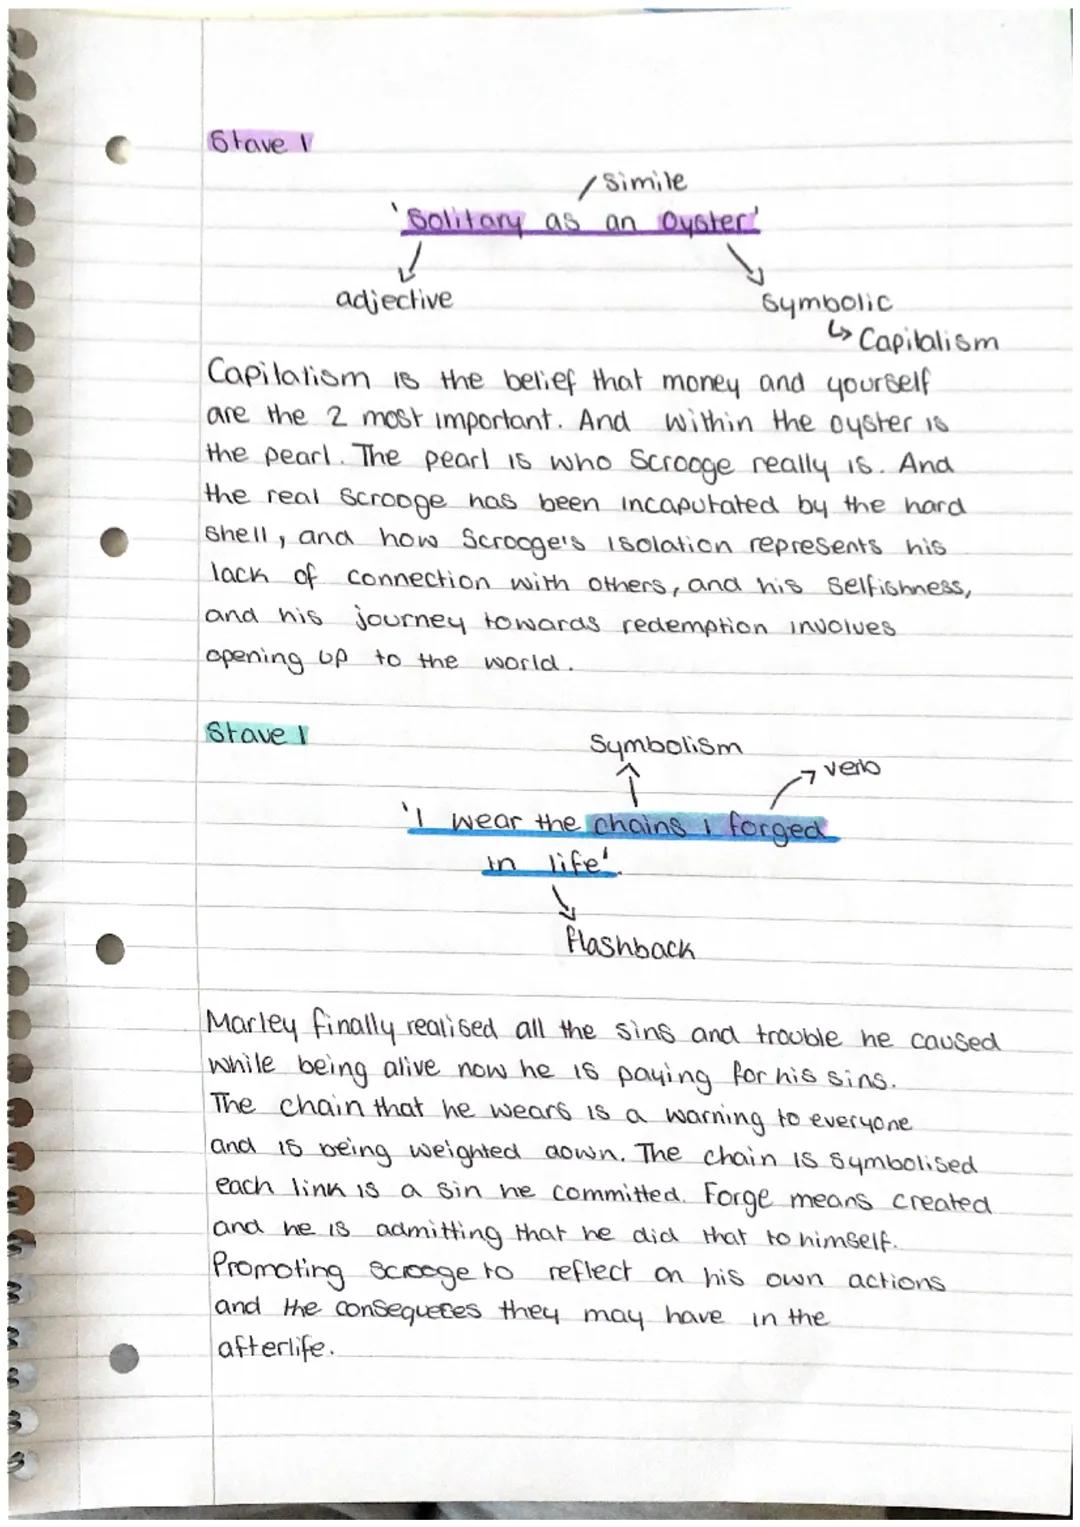 Stave 1
Simile
'Solitary as an Oyster'
adjective
Symbolic
↳ Capitalism
Capitalism is the belief that money and yourself
are the 2 most important. And within the oyster is
the pearl. The pearl is who Scrooge really is. And
the real Scrooge has been incaputated by the hard
shell, and how Scrooge's isolation represents his
lack of connection with others, and his selfishness,
and his journey towards redemption involves
opening up to the world.
Stave 1
Symbolism
verb
'I wear the chains I forged
in life'.
flashback
Marley finally realised all the sins and trouble he caused
while being alive now he is paying for his sins.
The chain that he wears is a warning to everyone
and is being weighted down. The chain is symbolised
each link is a sin he committed. Forge means created
and he is admitting that he did that to himself.
Promoting Scrooge to reflect on his own actions
and the conseques they may have in the
afterlife.